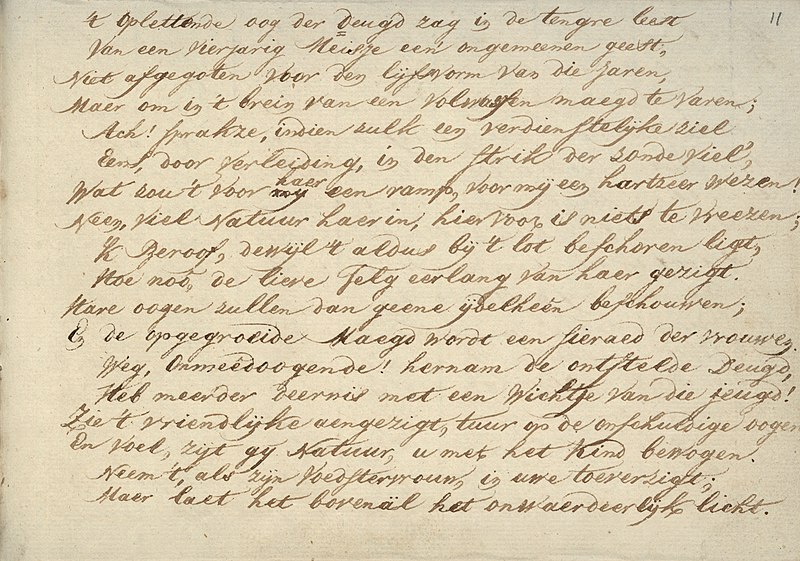 11
't Oplettende oog der Deugd zag in de tengre leest
Van een vierjarig Meisje een ongemeenen geest,
Niet afgegoten voor den lijfsvorm van die jaren,
Maer om in 't brein van een volwassen maegd te varen;
Ach! sprakze, indien zulk een verdienstelijke ziel
Eens, door verleiding, in den strik der zonde viel,
Wat zou 't voor haer een ramp, voor mij een hartzeer wezen!
Neen, viel Natuur haer in, hier voor is niets te vreezen;
'K Beroof, dewijl 't aldus bij 't lot beschoren ligt,
Hoe noô, de lieve Telg eerlang van haer gezigt.
Hare oogen zullen dan geene ijdelheên beschouwen;
En de opgegroeide Maegd wordt een sieraed der vrouwen.
Weg, Onmeêdoogende! hernam de ontstelde Deugd,
Heb meerder deernis met een Wichtje van die jeugd!
Zie 't vriendlijke aengezigt, tuur op de onschuldige oogen
En voel, zijt gy Natuur, u met het Kind bewogen.
Neem 't, als zijn Voedstervrouw, in uwe toeverzigt;
Maer laet het bovenäl het onwaerdeerlijk licht.